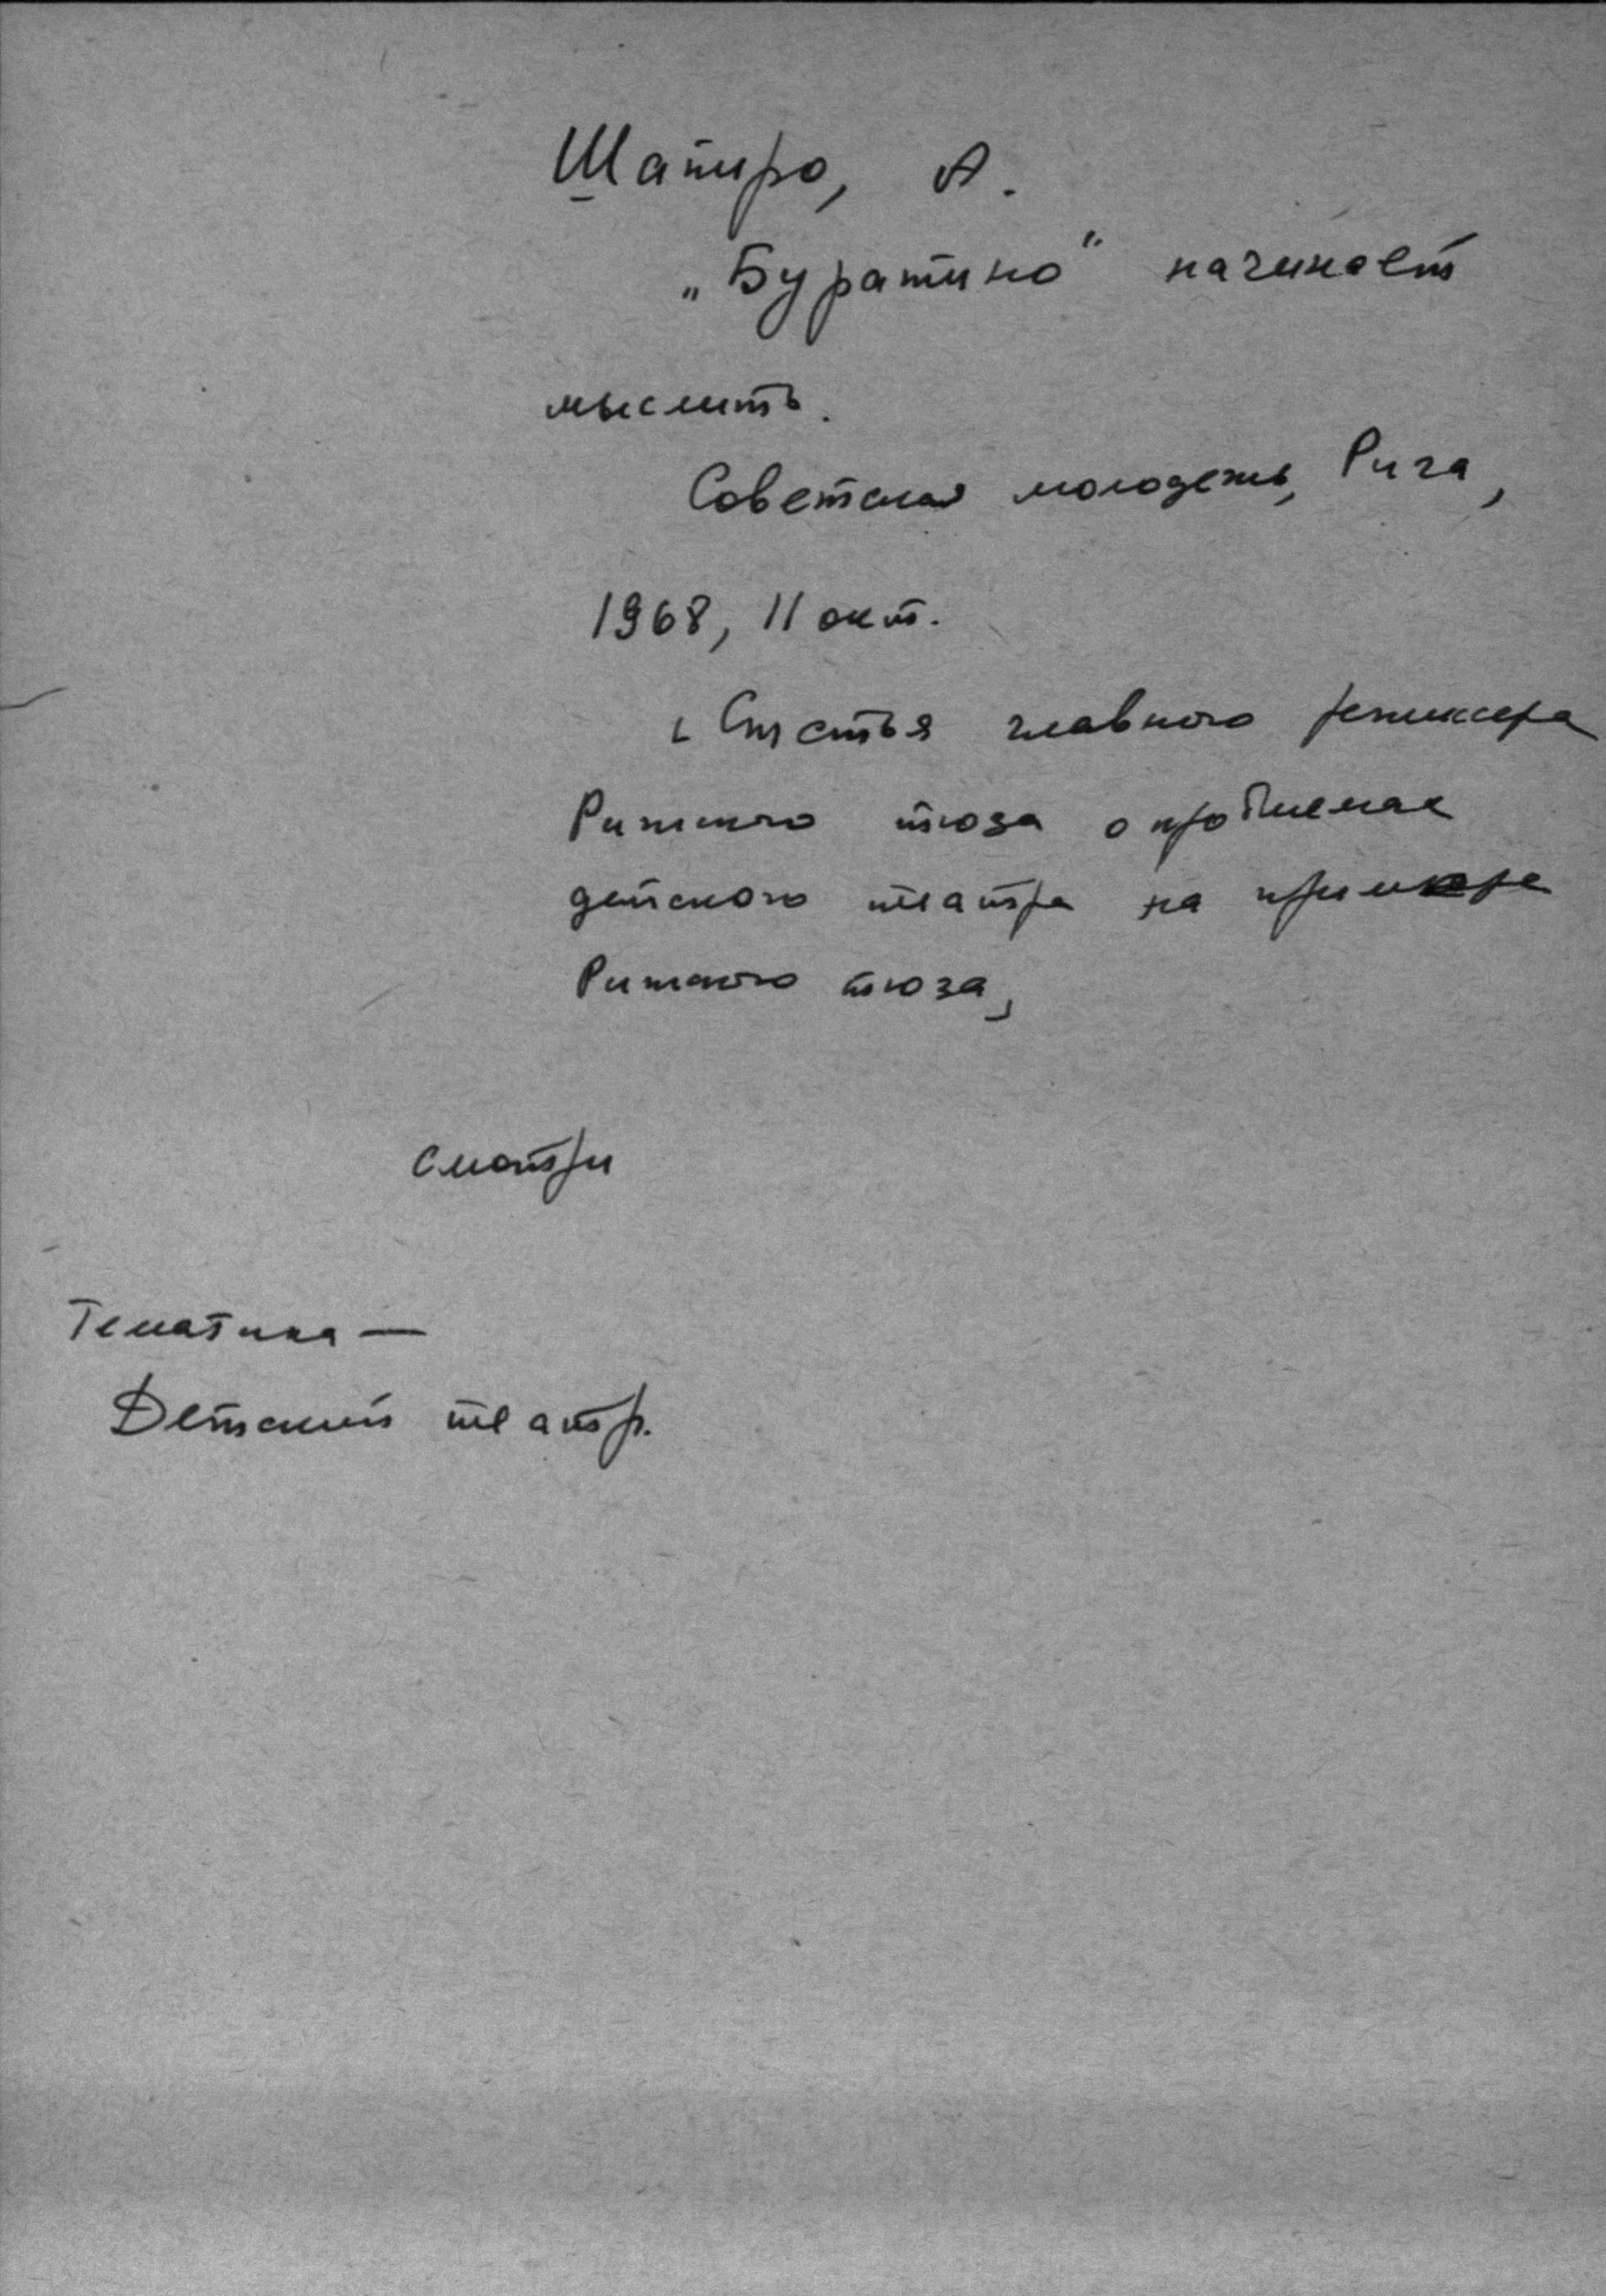 Шапиро, А.
„Буратино“ начинает
мыслить.
Советская молодежь, Рига,
1968, 11 окт.
[Статья главного режиссера
Рижского тюза о проблемах
детского театра на примере
Рижского тюза]
смотри
Тематика —
Детский театр.